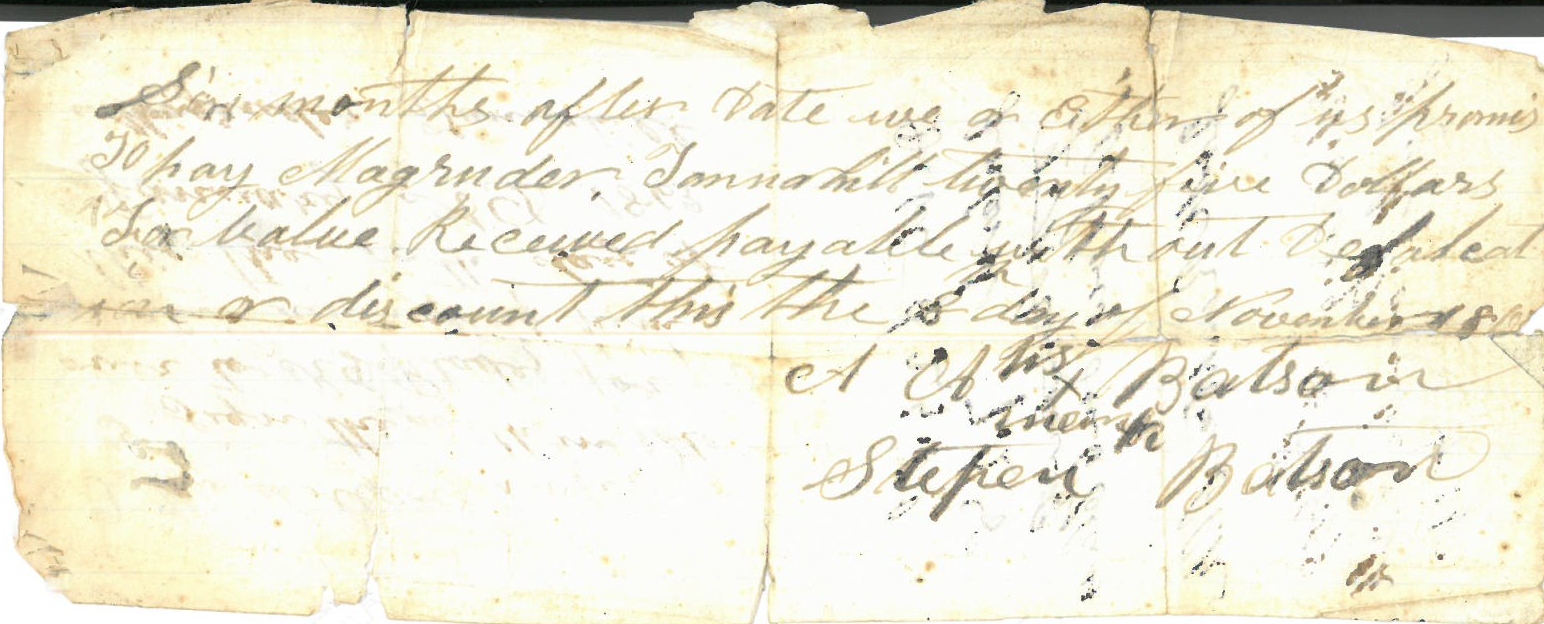 Six months after Date we or Either of us promis
To pay Magruder Tannahill twenty five Dollars
For Value Received payable without Defalcat
or discount this the 8th day of November 18
A A his x Batson
mark
Stepen Batson